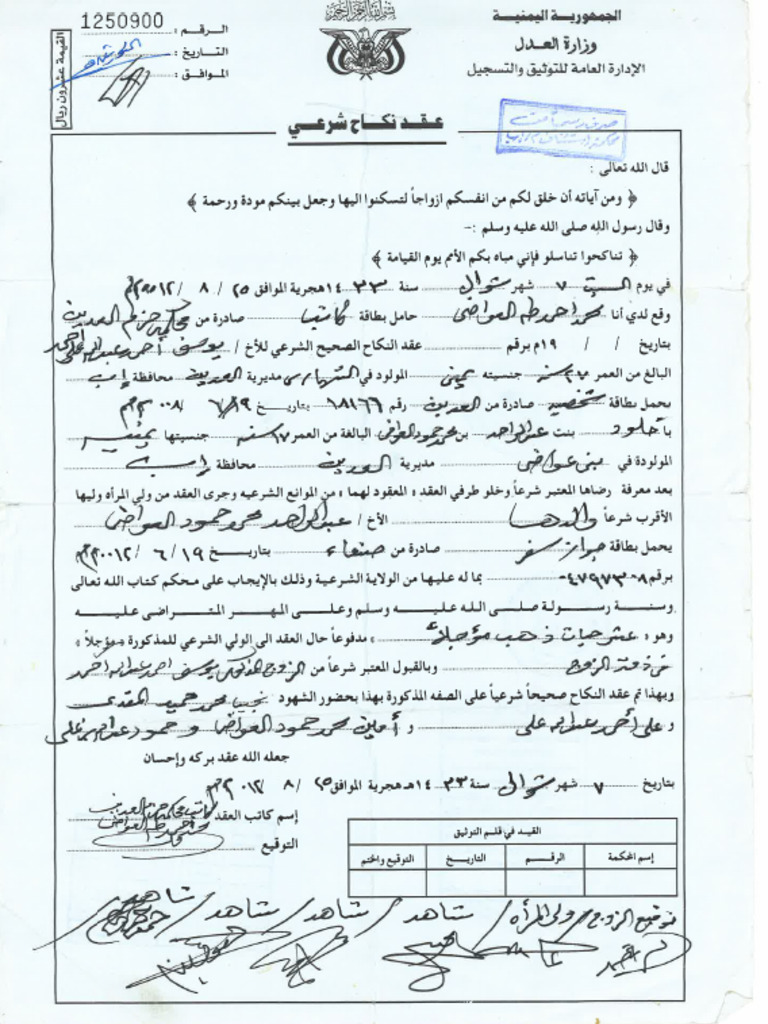 بسم الله الرحمن الرحيم
الجمهورية اليمنية
وزارة العدل
الإدارة العامة للتوثيق والتسجيل
الرقم : 1250900
التاريخ :
الموافق :
القيمة عشرون ريال
عقد نكاح شرعي
قال الله تعالى :
﴿ ومن آياته أن خلق لكم من انفسكم ازواجاً لتسكنوا اليها وجعل بينكم مودة ورحمة ﴾
وقال رسول الله صلى الله عليه وسلم :-
﴿ تناكحوا تناسلو فإني مباه بكم الأمم يوم القيامة ﴾
في يوم السبت ٧ شهر شوال سنة ١٤٣٣ هجرية الموافق ٢٥ / ٨ / ٢٠١٢م
وقع لدي أنا محمد احمد طه العواضي حامل بطاقة كاتب صادرة من محاكم حزم العدين
بتاريخ / / ١٩م برقم عقد النكاح الصحيح الشرعي للأخ / يوسف أحمد عبدالله علي احمد
البالغ من العمر ٢٧ سنة جنسيته يمني المولود في مديرية العدين محافظة إب
يحمل بطاقة شخصية صادرة من العدين رقم ٦٨١٦٦ بتاريخ ١٩ / ٦ / ٢٠٠٨م
بنت عبدالواحد بن محمد حمود العواضي البالغة من العمر ١٧ سنة جنسيتها يمنيه
المولودة في بني عواض مديرية العدين محافظة إب
بعد معرفة رضاها المعتبر شرعاً وخلو طرفي العقد « المعقود لهما » من الموانع الشرعيه وجرى العقد من ولي المرأه وليها
الأقرب شرعاً والدها الأخ / عبدالواحد محمد حمود العواضي
يحمل بطاقة جواز سفر صادرة من صنعاء بتاريخ ١٩ / ٦ / ٢٠٠١٢م
برقم ٠٤٧٩٧٣٠٨ بما له عليها من الولاية الشرعية وذلك بالإيجاب على محكم كتاب الله تعالى
وسنة رسولة صلى الله عليه وسلم وعلى المهر المتراضى عليه
وهو « عشر حبات ذهب مؤجلاً » مدفوعاً حال العقد الى الولي الشرعي للمذكورة « مؤجلاً »
في ذمة الزوج وبالقبول المعتبر شرعاً من الزوج المذكور يوسف احمد عبدالله احمد
وبهذا تم عقد النكاح صحيحاً شرعياً على الصفه المذكورة بهذا بحضور الشهود نجيب محمد حميد
وعلي أحمد عبدالله علي و أمين محمد حمود العواضي و حمود علي
جعله الله عقد بركه وإحسان
بتاريخ ٧ شهر شوال سنة ١٤٣٣ هـ هجرية الموافق ٢٥ / ٨ / ٢٠١٢م
إسم كاتب العقد كاتب محاكم حزم العدين
محمد احمد طه العواضي
التوقيع
القيد في قلم التوثيق
إسم المحكمة الرقم التاريخ التوقيع والختم
توقيع الزوج / ولي المرأه / شاهد / شاهد / شاهد / شاهد